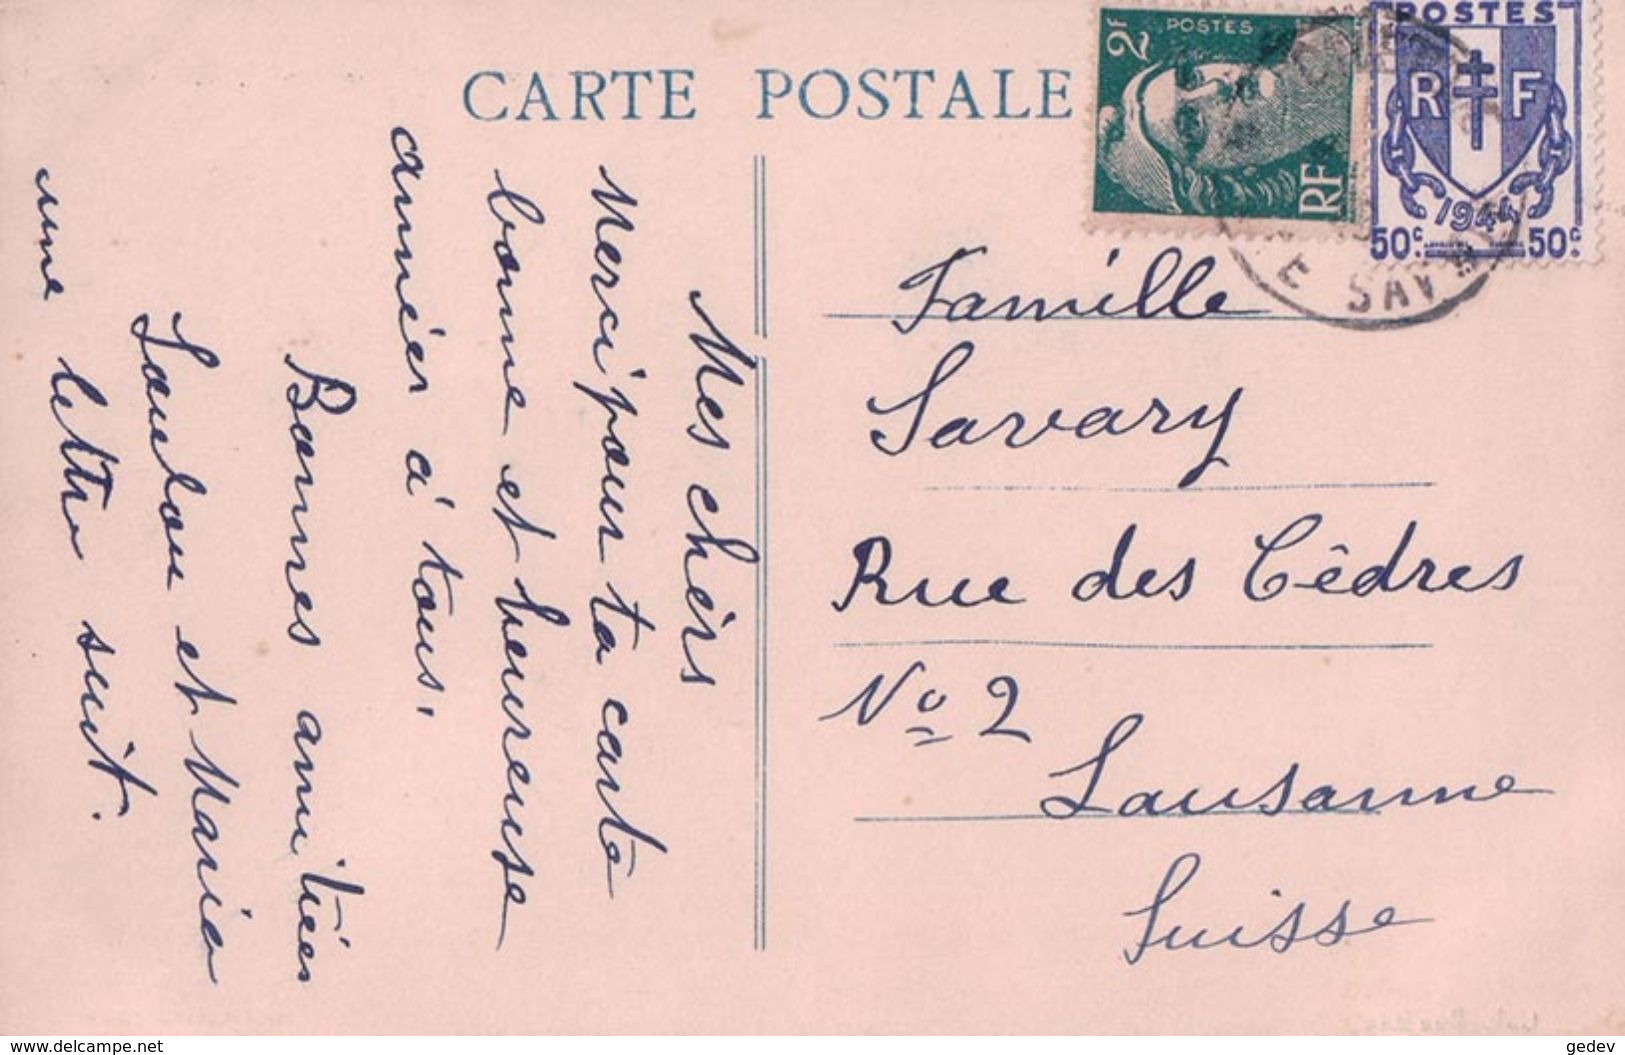 CARTE POSTALE
2F
POSTES
RF
POSTES
RF
1944
50c 50c
E SAV
Mes chèrs
Merci pour ta carte
bonne et heureuse
année à tous.
Bonnes amitiés
et Marie
une lettre suit.
Famille
Savary
Rue des Cèdres
No 2
Lausanne
Suisse
www.delcampe.net
gedev